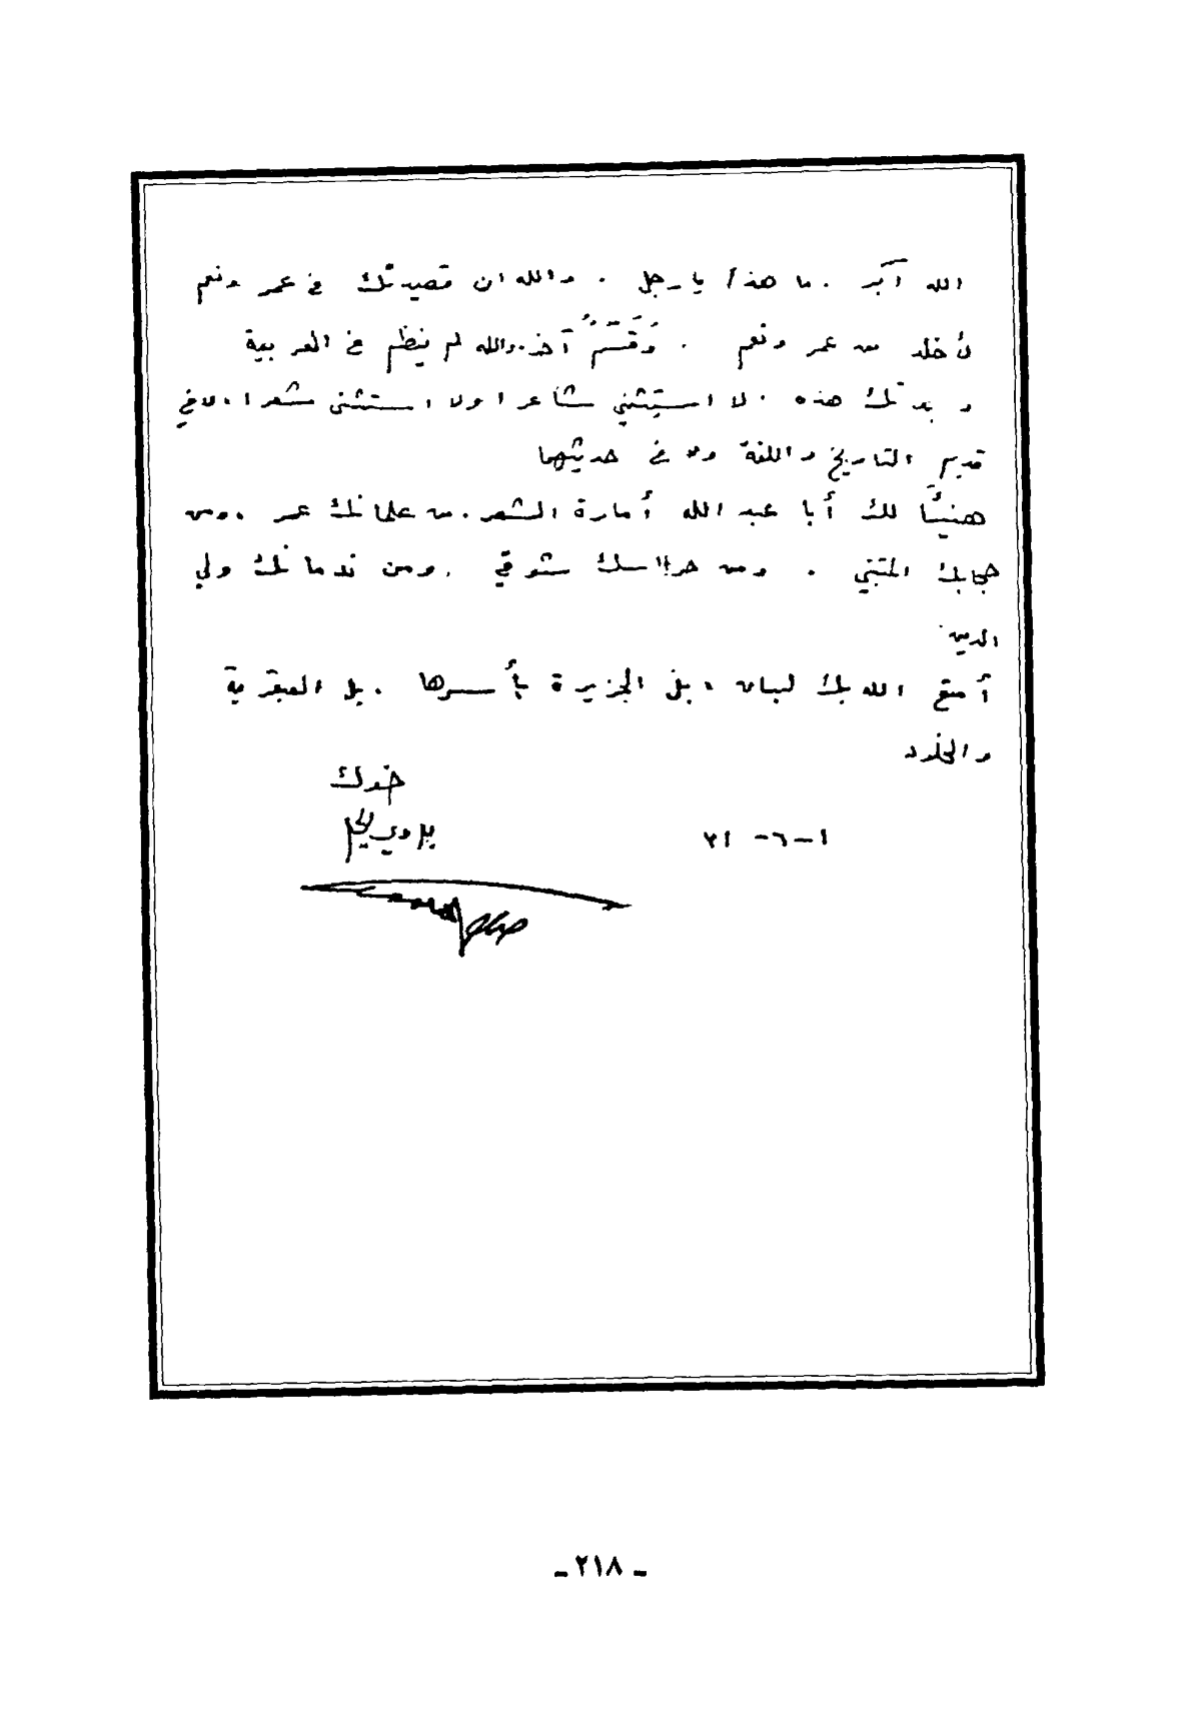 الله أكبر . ما هذا يا رجل . والله ان قصيدتك في عمر ونعم
لأخلد من عمر ونعم . وَقَسَمٌ آخر . والله لم ينظم في العربية
هذه . لا استثني شاعرا ولا استثني شعرا . لا في
قديم التاريخ واللغة ولا في حديثهما
هنيئاً لك أبا عبد الله أمارة الشعر . من غلمانك عمر . ومن
حجابك المتنبي . ومن حراسك شوقي . ومن ندمانك ولي
الدين
أمتع الله بك لبنان ، بل الجزيرة بأسرها . بل العبقرية
والخلود
أخوك
بدوي الجبل
١-٦-٣١
- ٢١٨ -